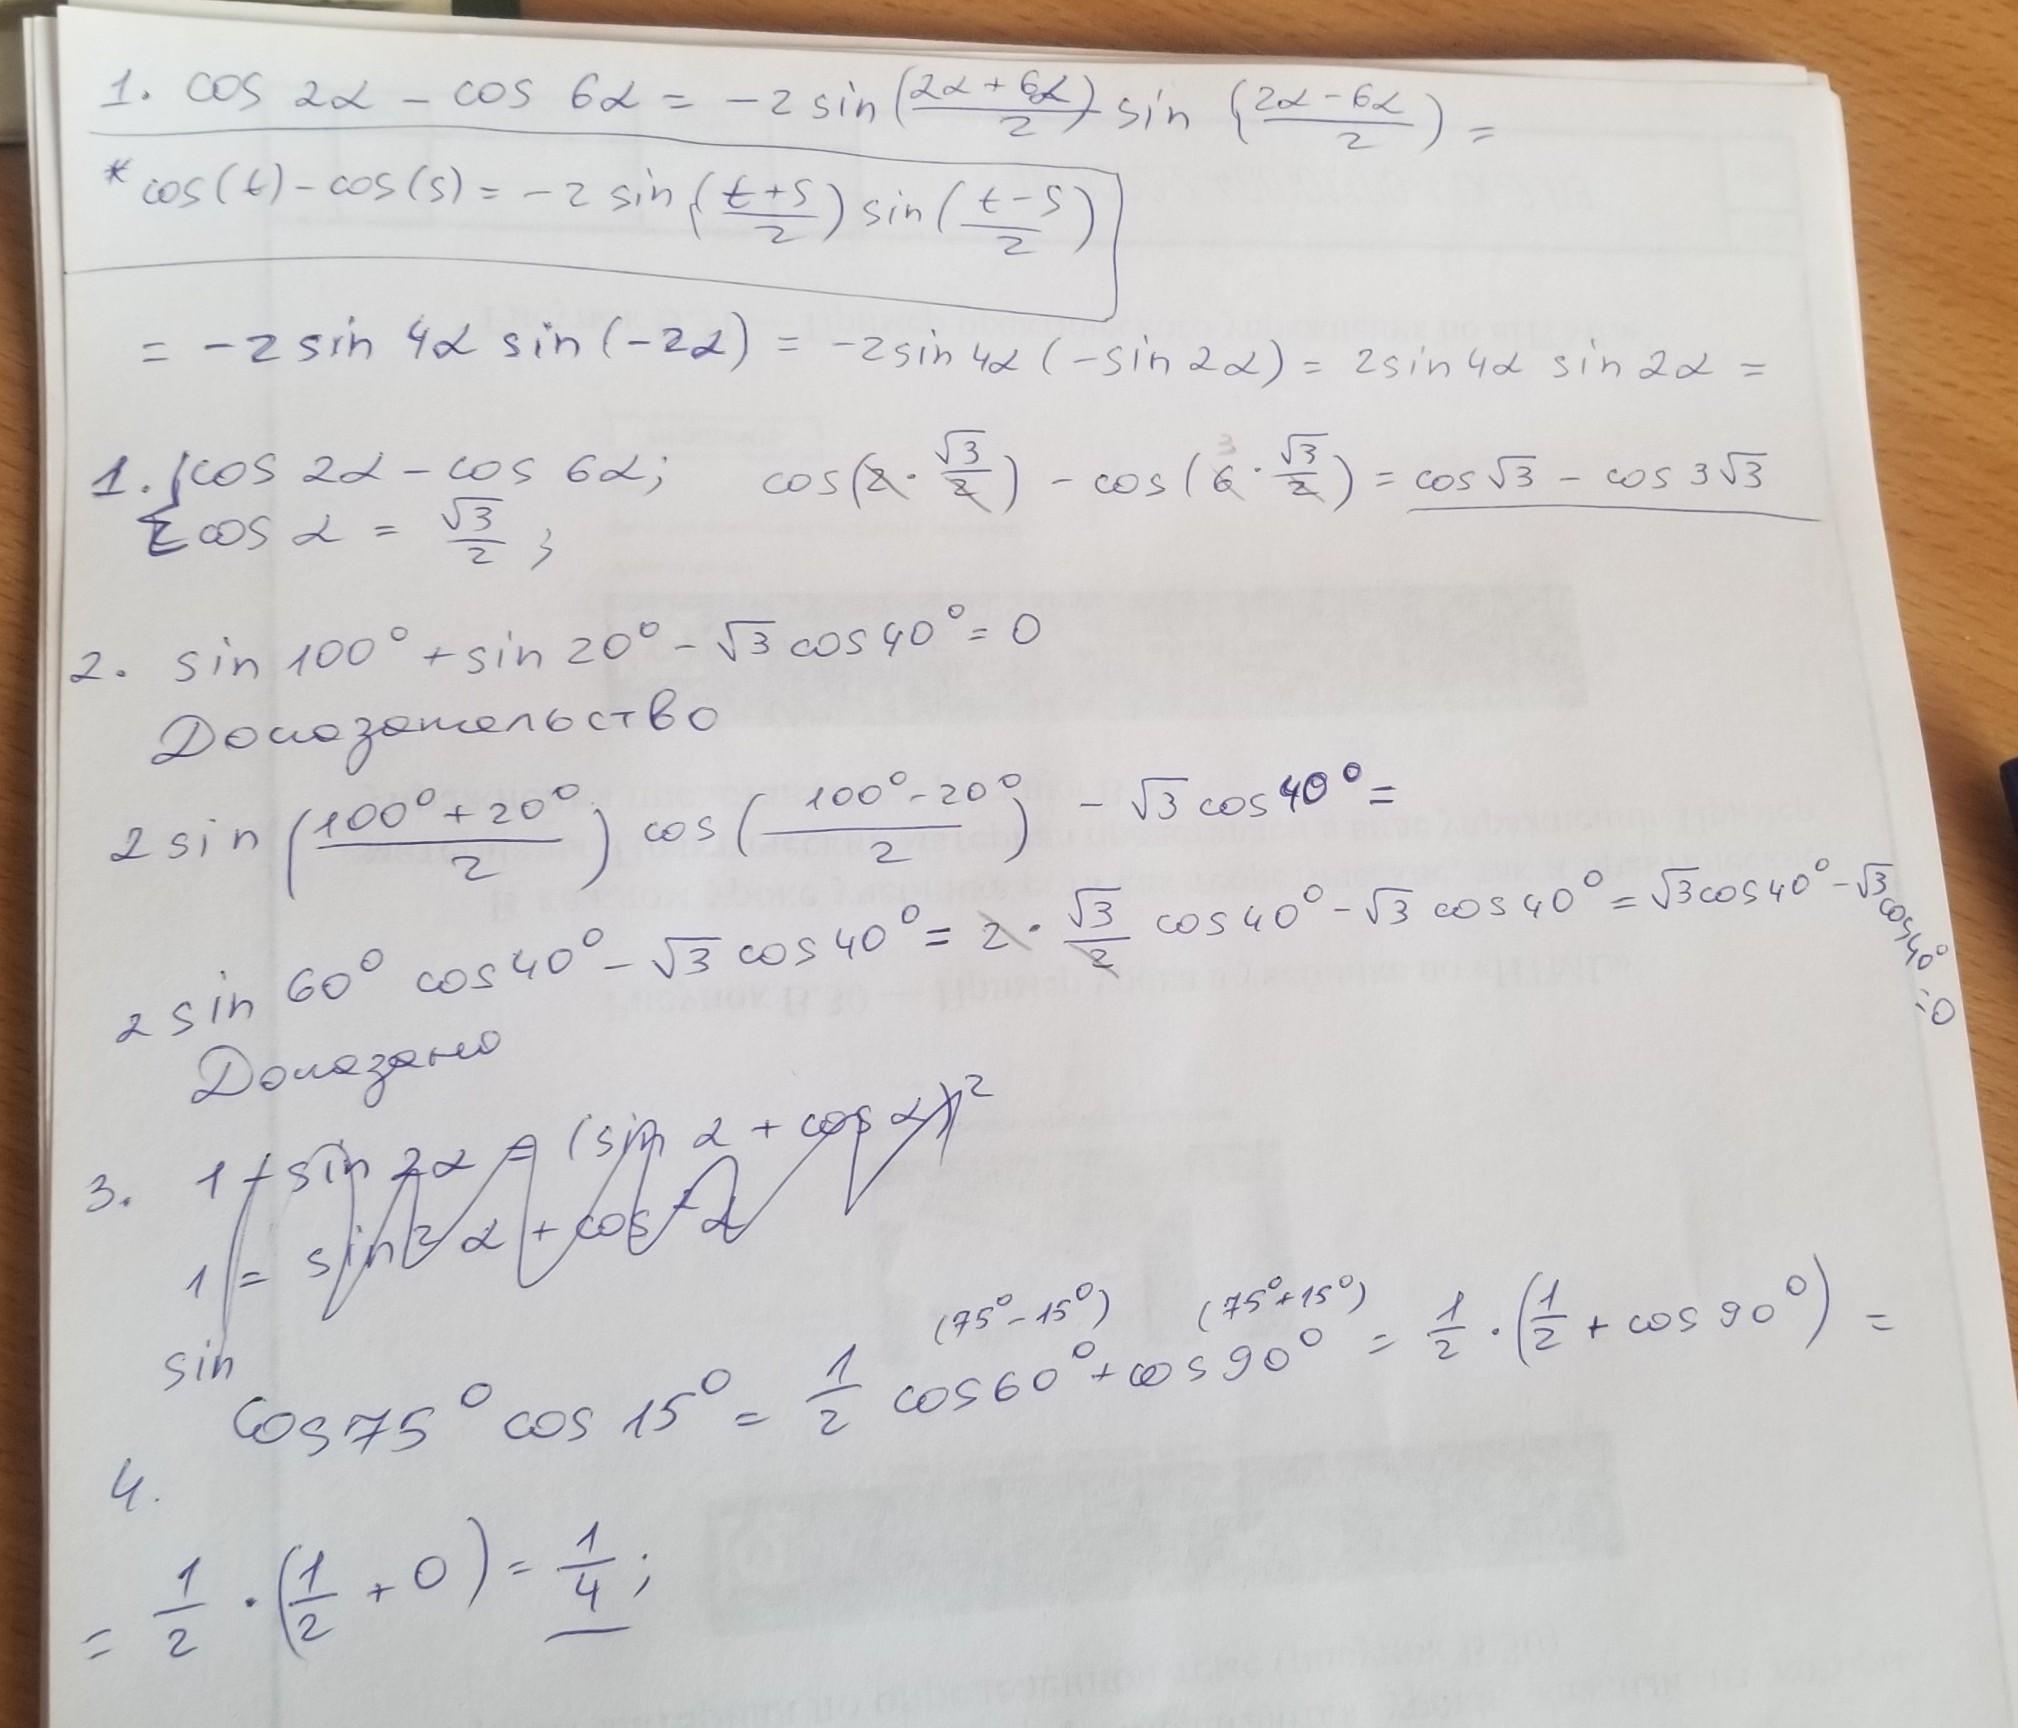 1. cos 2α - cos 6α = -2 sin((2α + 6α)/2) sin((2α - 6α)/2) =
* cos(t) - cos(s) = -2 sin((t+s)/2) sin((t-s)/2)
= -2 sin 4α sin(-2α) = -2 sin 4α (-sin 2α) = 2 sin 4α sin 2α =
1. { cos 2α - cos 6α; cos(2 · √3/2) - cos(6 · √3/2) = cos √3 - cos 3√3
cos α = √3/2;
2. sin 100° + sin 20° - √3 cos 40° = 0
Доказательство
2 sin((100° + 20°)/2) cos((100° - 20°)/2) - √3 cos 40° =
2 sin 60° cos 40° - √3 cos 40° = 2 · √3/2 cos 40° - √3 cos 40° = √3 cos 40° - √3 cos 40° = 0
Доказано
3. 1 + sin 2α = (sin α + cos α)²
1 = sin² α + cos² α
sin
(75° - 15°) (75° + 15°)
cos 75° cos 15° = 1/2 cos 60° + cos 90° = 1/2 · (1/2 + cos 90°) =
4.
= 1/2 · (1/2 + 0) = 1/4;